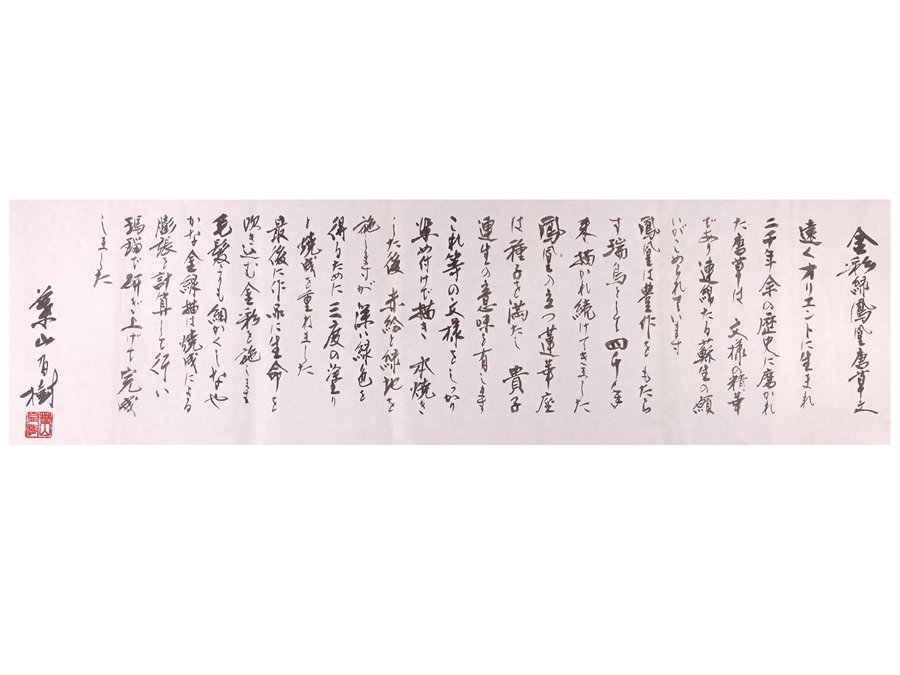 金彩緑鳳凰唐草文
遠くオリエントに生まれ
二千年余の歴史に磨かれ
た唐草は 文様の精華
であり連綿たる蘇生の願
いがこめられています
鳳凰は豊作をもたら
す瑞鳥として四千年
来描かれ続けてきました
鳳凰の立つ蓮華座
は種子を満たし 貴子
連生の意味を有します
これ等の文様をしっかり
染め付けで描き 本焼き
した後 赤絵と緑地を
施しますが 深い緑色を
得るために三度の塗り
と焼成を重ねました
最後に作品に生命を
吹き込む金彩を施します
毛髪よりも細かくしなや
かな金線描は焼成による
膨張を計算して行い
瑪瑙で研ぎ上げて完成
しました
葉山有樹